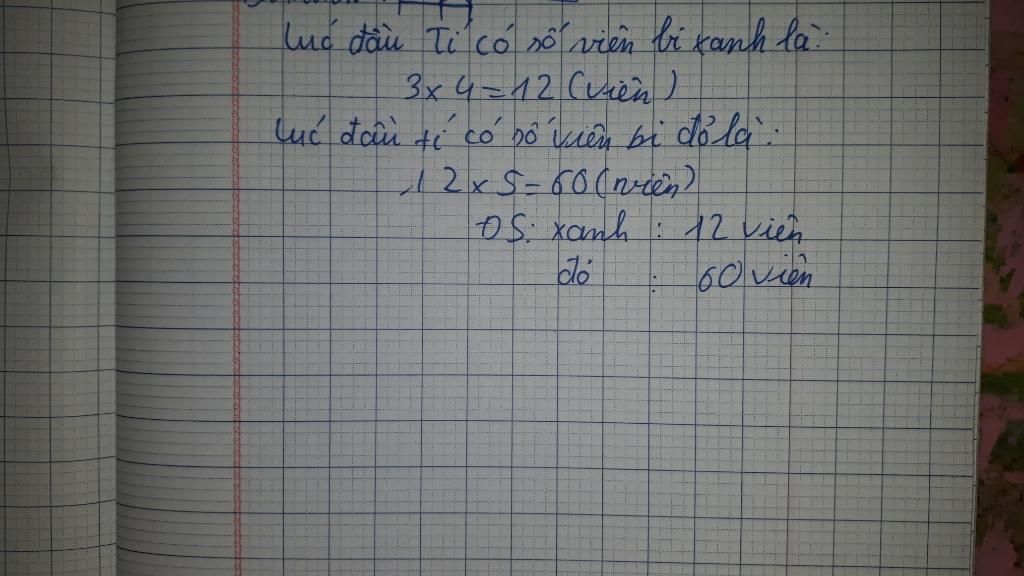 Lúc đầu Tí có số viên bi xanh là:
3 x 4 = 12 (viên)
Lúc đầu tí có số viên bi đỏ là:
12 x 5 = 60 (viên)
ĐS: xanh : 12 viên
đỏ : 60 viên